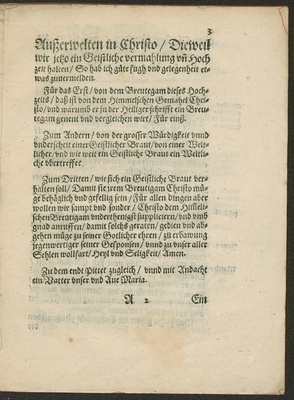 3
Außerwelten in Christo / Dieweil
wir jetzo ein Geistliche vermahlung vñ Hoch
zeit halten / So hab ich gůte fůgh vnd gelegenheit et-
was zuvermelden.
Für das Erst / von dem Breutegam dieses Hoch-
zeits / daß ist von dem Himmelischen Gemahel Chri-
sto / vnd warumb er in der Heiliger schrifft ein Breu-
tegam genent vnd vergleichen wirt / Für einß.
Zum Andern / von der grosser Würdigkeit vnnd
vnderscheit einer Geistlicher Braut / von einer Welt-
licher / vnd wie weit ein Geistliche Braut ein Weltli-
che vbertreffet
Zum Dritten / wie sich ein Geistliche Braut ver-
halten soll / Damit sie jrem Breutigam Christo mü-
ge behäglich vnd gefellig sein / Für allen dingen aber
wollen wir sampt vnd sonder / Christo dem Himeli-
schen Breutigam vnderthenigst suppliciern / vnd vmb
gnad anruffen / damit solchs geraten / gedien vnd ab-
gehen müge zu seiner Gotlicher ehren / zu erbawung
jegenwertiger seiner Gesponsen / vnnd zu vnser aller
Sehlen wolffart / Heyl vnd Seligkeit / Amen.
Zu dem endt Bittet zugleich / vnnd mit Andacht
ein Vatter vnser vnd Aue Maria.
A 2 Ein